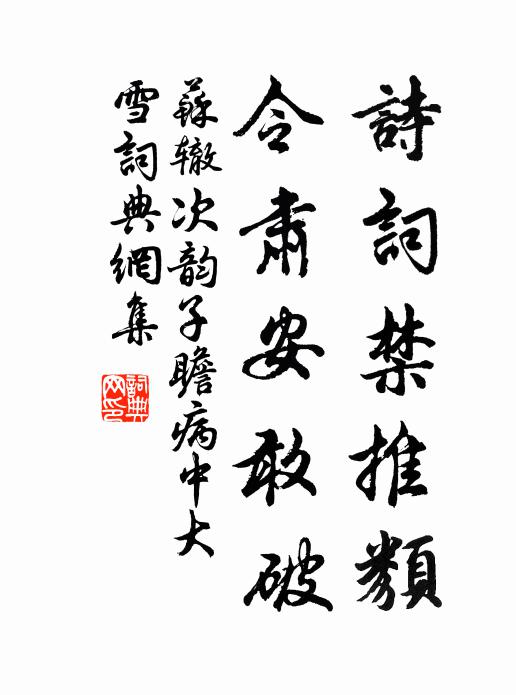 詩詞禁推類
令肅安敢破
蘇辙次韵子瞻病中大
雪詞典網集
詞典网印